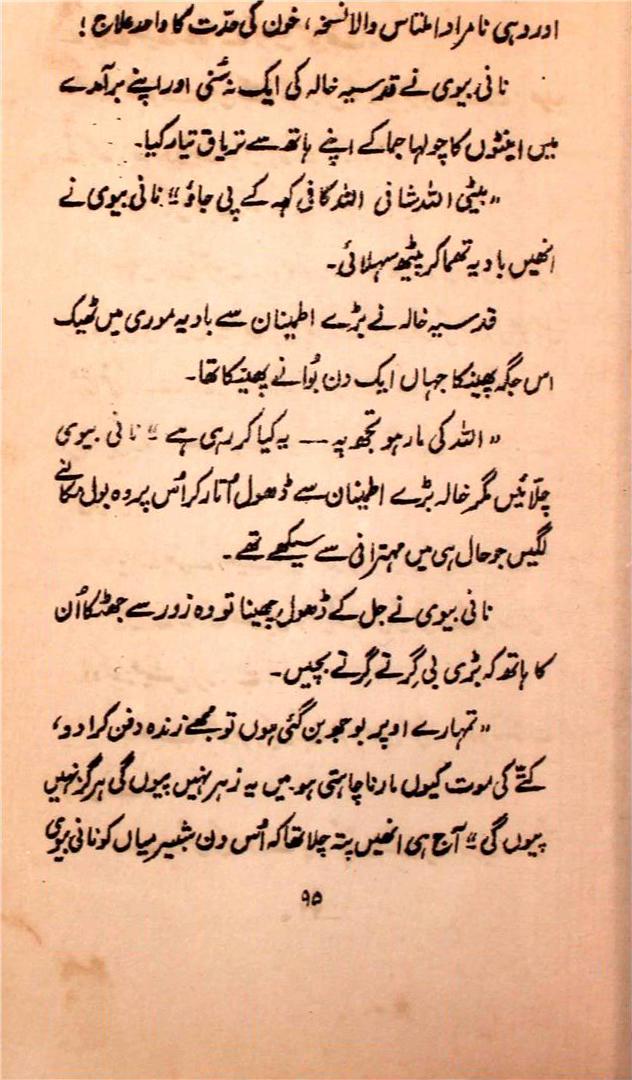 اور وہی نامراد املتاس والا نسخہ، خون کی حدّت کا واحد علاج!
نانی بیوی نے قدسیہ خالہ کی ایک نہ سُنی اور اپنے برآمدے
میں اینٹوں کا چولہا جما کے اپنے ہاتھ سے تریاق تیار کیا۔
"بیٹی اللہ شافی اللہ کافی کہہ کے پی جاؤ" نانی بیوی نے
انھیں بادیہ تھما کر پیٹھ سہلائی۔
قدسیہ خالہ نے بڑے اطمینان سے بادیہ موری میں ٹھیک
اس جگہ پھینکا جہاں ایک دن بُوا نے پھینکا تھا۔
"اللہ کی مار ہو تجھ پہ -- یہ کیا کر رہی ہے" نانی بیوی
چلّائیں مگر خالہ بڑے اطمینان سے ڈھول اُتار کر اُس پر وہ بول مکانے
لگیں جو حال ہی میں مہترانی سے سیکھے تھے۔
نانی بیوی نے جل کے ڈھول چھینا تو وہ زور سے جھٹکا اُن
کا ہاتھ کہ بڑی بی گرتے گرتے بچیں۔
"تمہارے اوپر بوجھ بن گئی ہوں تو مجھے زندہ دفن کرا دو،
کتّے کی موت کیوں مارنا چاہتی ہو میں یہ زہر نہیں پیوں گی ہرگز نہیں
پیوں گی" آج ہی انھیں پتہ چلا تھا کہ اُس دن شبیر میاں کو نانی بیوی
۹۵